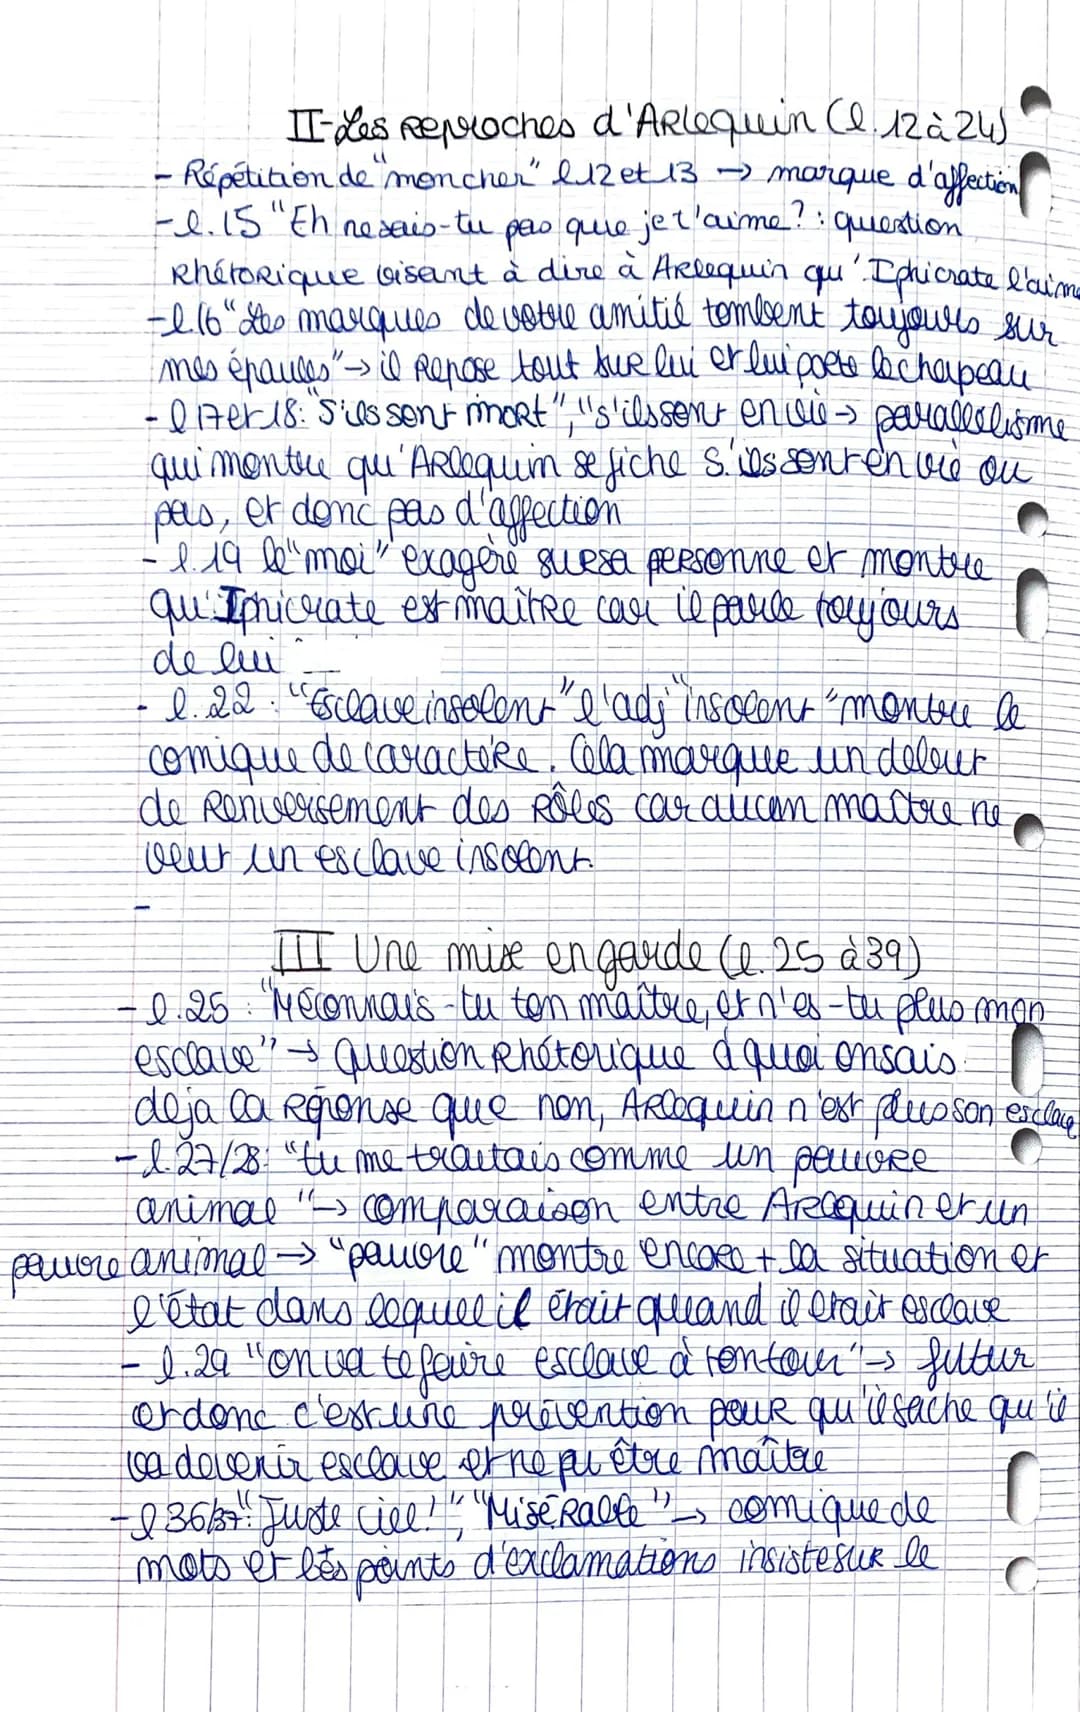 II-Les reproches d'Arlequin (l.12 à 24)
- Répétition de "mon cher" l12 et 13 → marque d'affection
- l.15 "Eh ne sais-tu pas que je t'aime? : question
Rhétorique visant à dire à Arlequin qu'Iphicrate l'aime
- l.16 "Les marques de votre amitié tombent toujours sur
mes épaules" → il Repose tout sur lui et lui porte le chapeau
- l17 et 18: "S'ils sont mort", "s'ils sont en vie → parallélisme
qui montre qu'Arlequin se fiche s'ils sont en vie ou
pas, et donc pas d'affection
- l.19 le "moi" exagère sur sa personne et montre
qu'Iphicrate est maître car il parle toujours
de lui
- l.22 : "Esclave insolent" l'adj "insolent" montre le
comique de caractère. Cela marque un début
de Renversement des Rôles car aucun maître ne
veut un esclave insolent.
-
III Une mise en garde (l.25 à 39)
- l.25 : "Méconnais-tu ton maître, et n'es-tu plus mon
esclave" → question Rhétorique à quoi on sait
déja la Réponse que non, Arlequin n'est plus son esclave
- l.27/28: "tu me traitais comme un pauvre
animal" → comparaison entre Arlequin et un
pauvre animal → "pauvre" montre encore + la situation et
l'état dans lequel il était quand il était esclave
- l.29 "on va te faire esclave à ton tour" → futur
et donc c'est une prévention pour qu'il sache qu'il
va devenir esclave et ne pu être maître
- l36/37: "Juste ciel!", "Misérable" → comique de
mots et les points d'exclamations insiste sur le